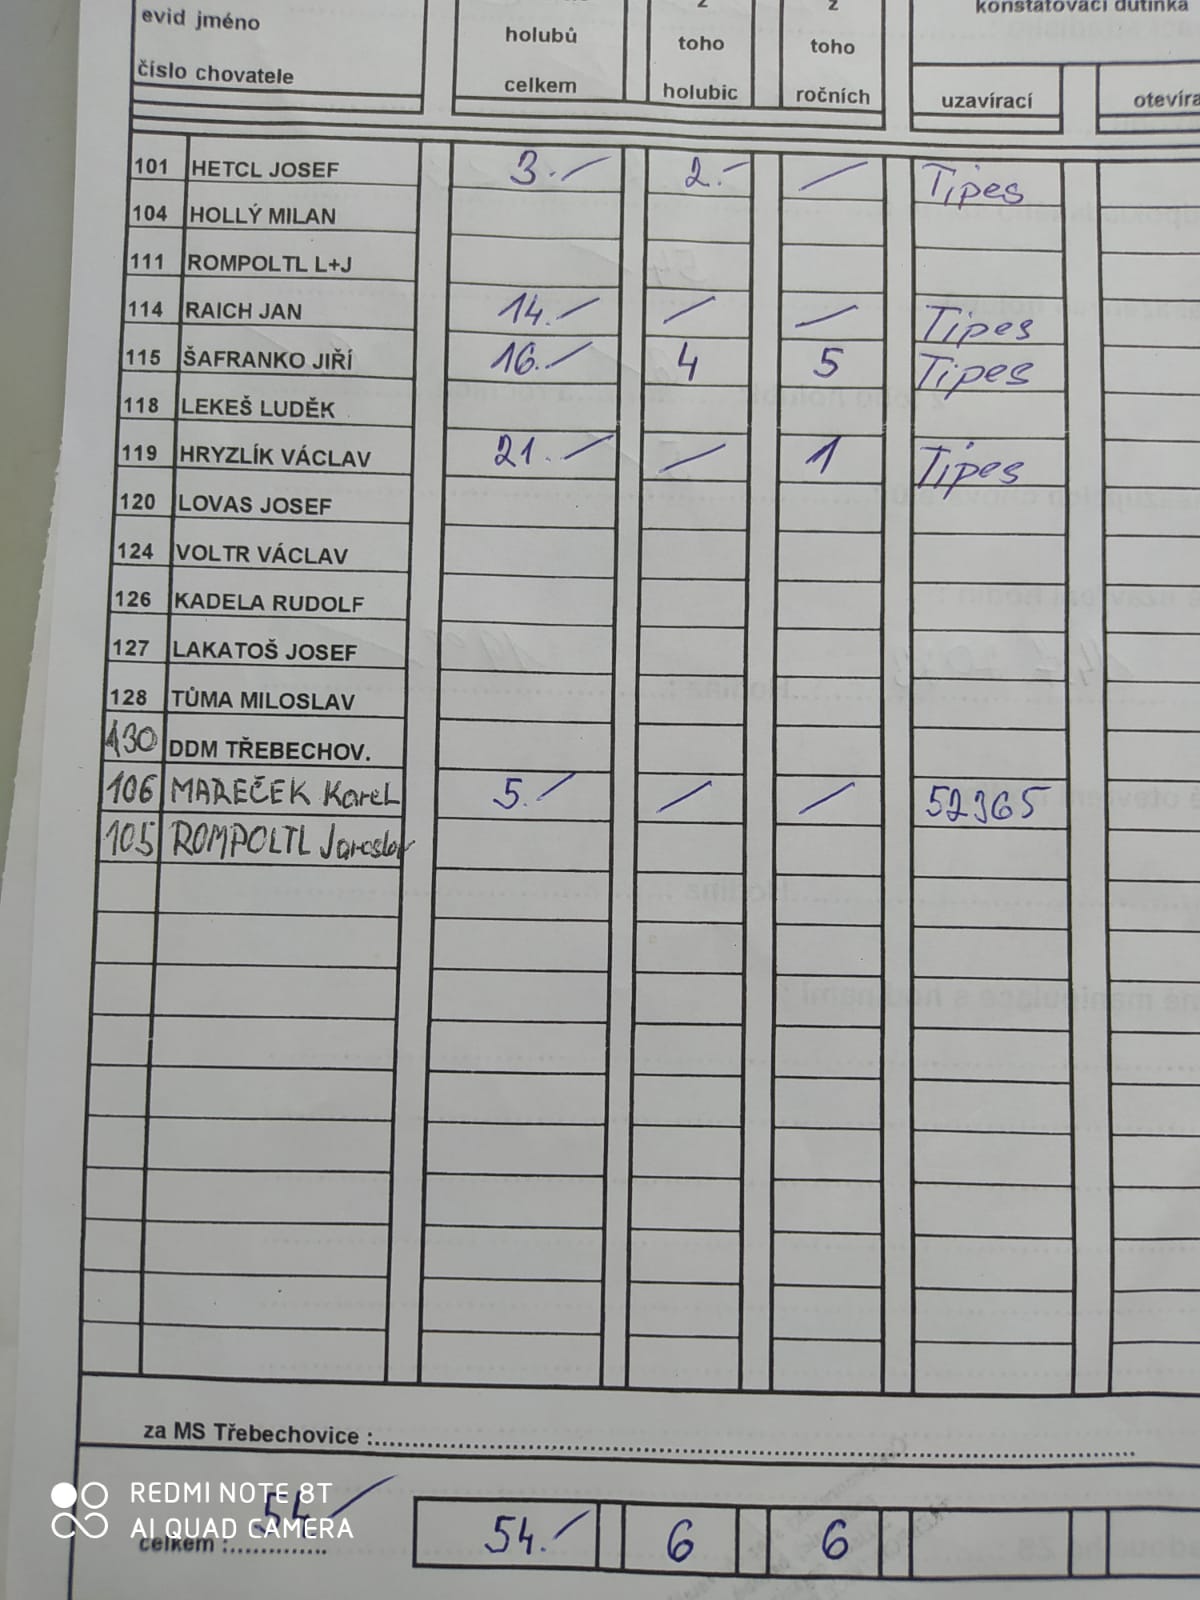 konstatovací dutinka
evid jméno holubů z z
číslo chovatele celkem toho toho
holubic ročních uzavírací
101 HETCL JOSEF 3.- 2.- - Tipes
104 HOLLÝ MILAN
111 ROMPOLTL L+J
114 RAICH JAN 14.- - - Tipes
115 ŠAFRANKO JIŘÍ 16.- 4 5 Tipes
118 LEKEŠ LUDĚK
119 HRYZLÍK VÁCLAV 21.- - 1 Tipes
120 LOVAS JOSEF
124 VOLTR VÁCLAV
126 KADELA RUDOLF
127 LAKATOŠ JOSEF
128 TŮMA MILOSLAV
130 DDM TŘEBECHOV.
106 MAREČEK Karel 5.- - - 52365
105 ROMPOLTL Jaroslav
za MS Třebechovice :
REDMI NOTE 8T
AI QUAD CAMERA
celkem : 54.- 54.- 6 6